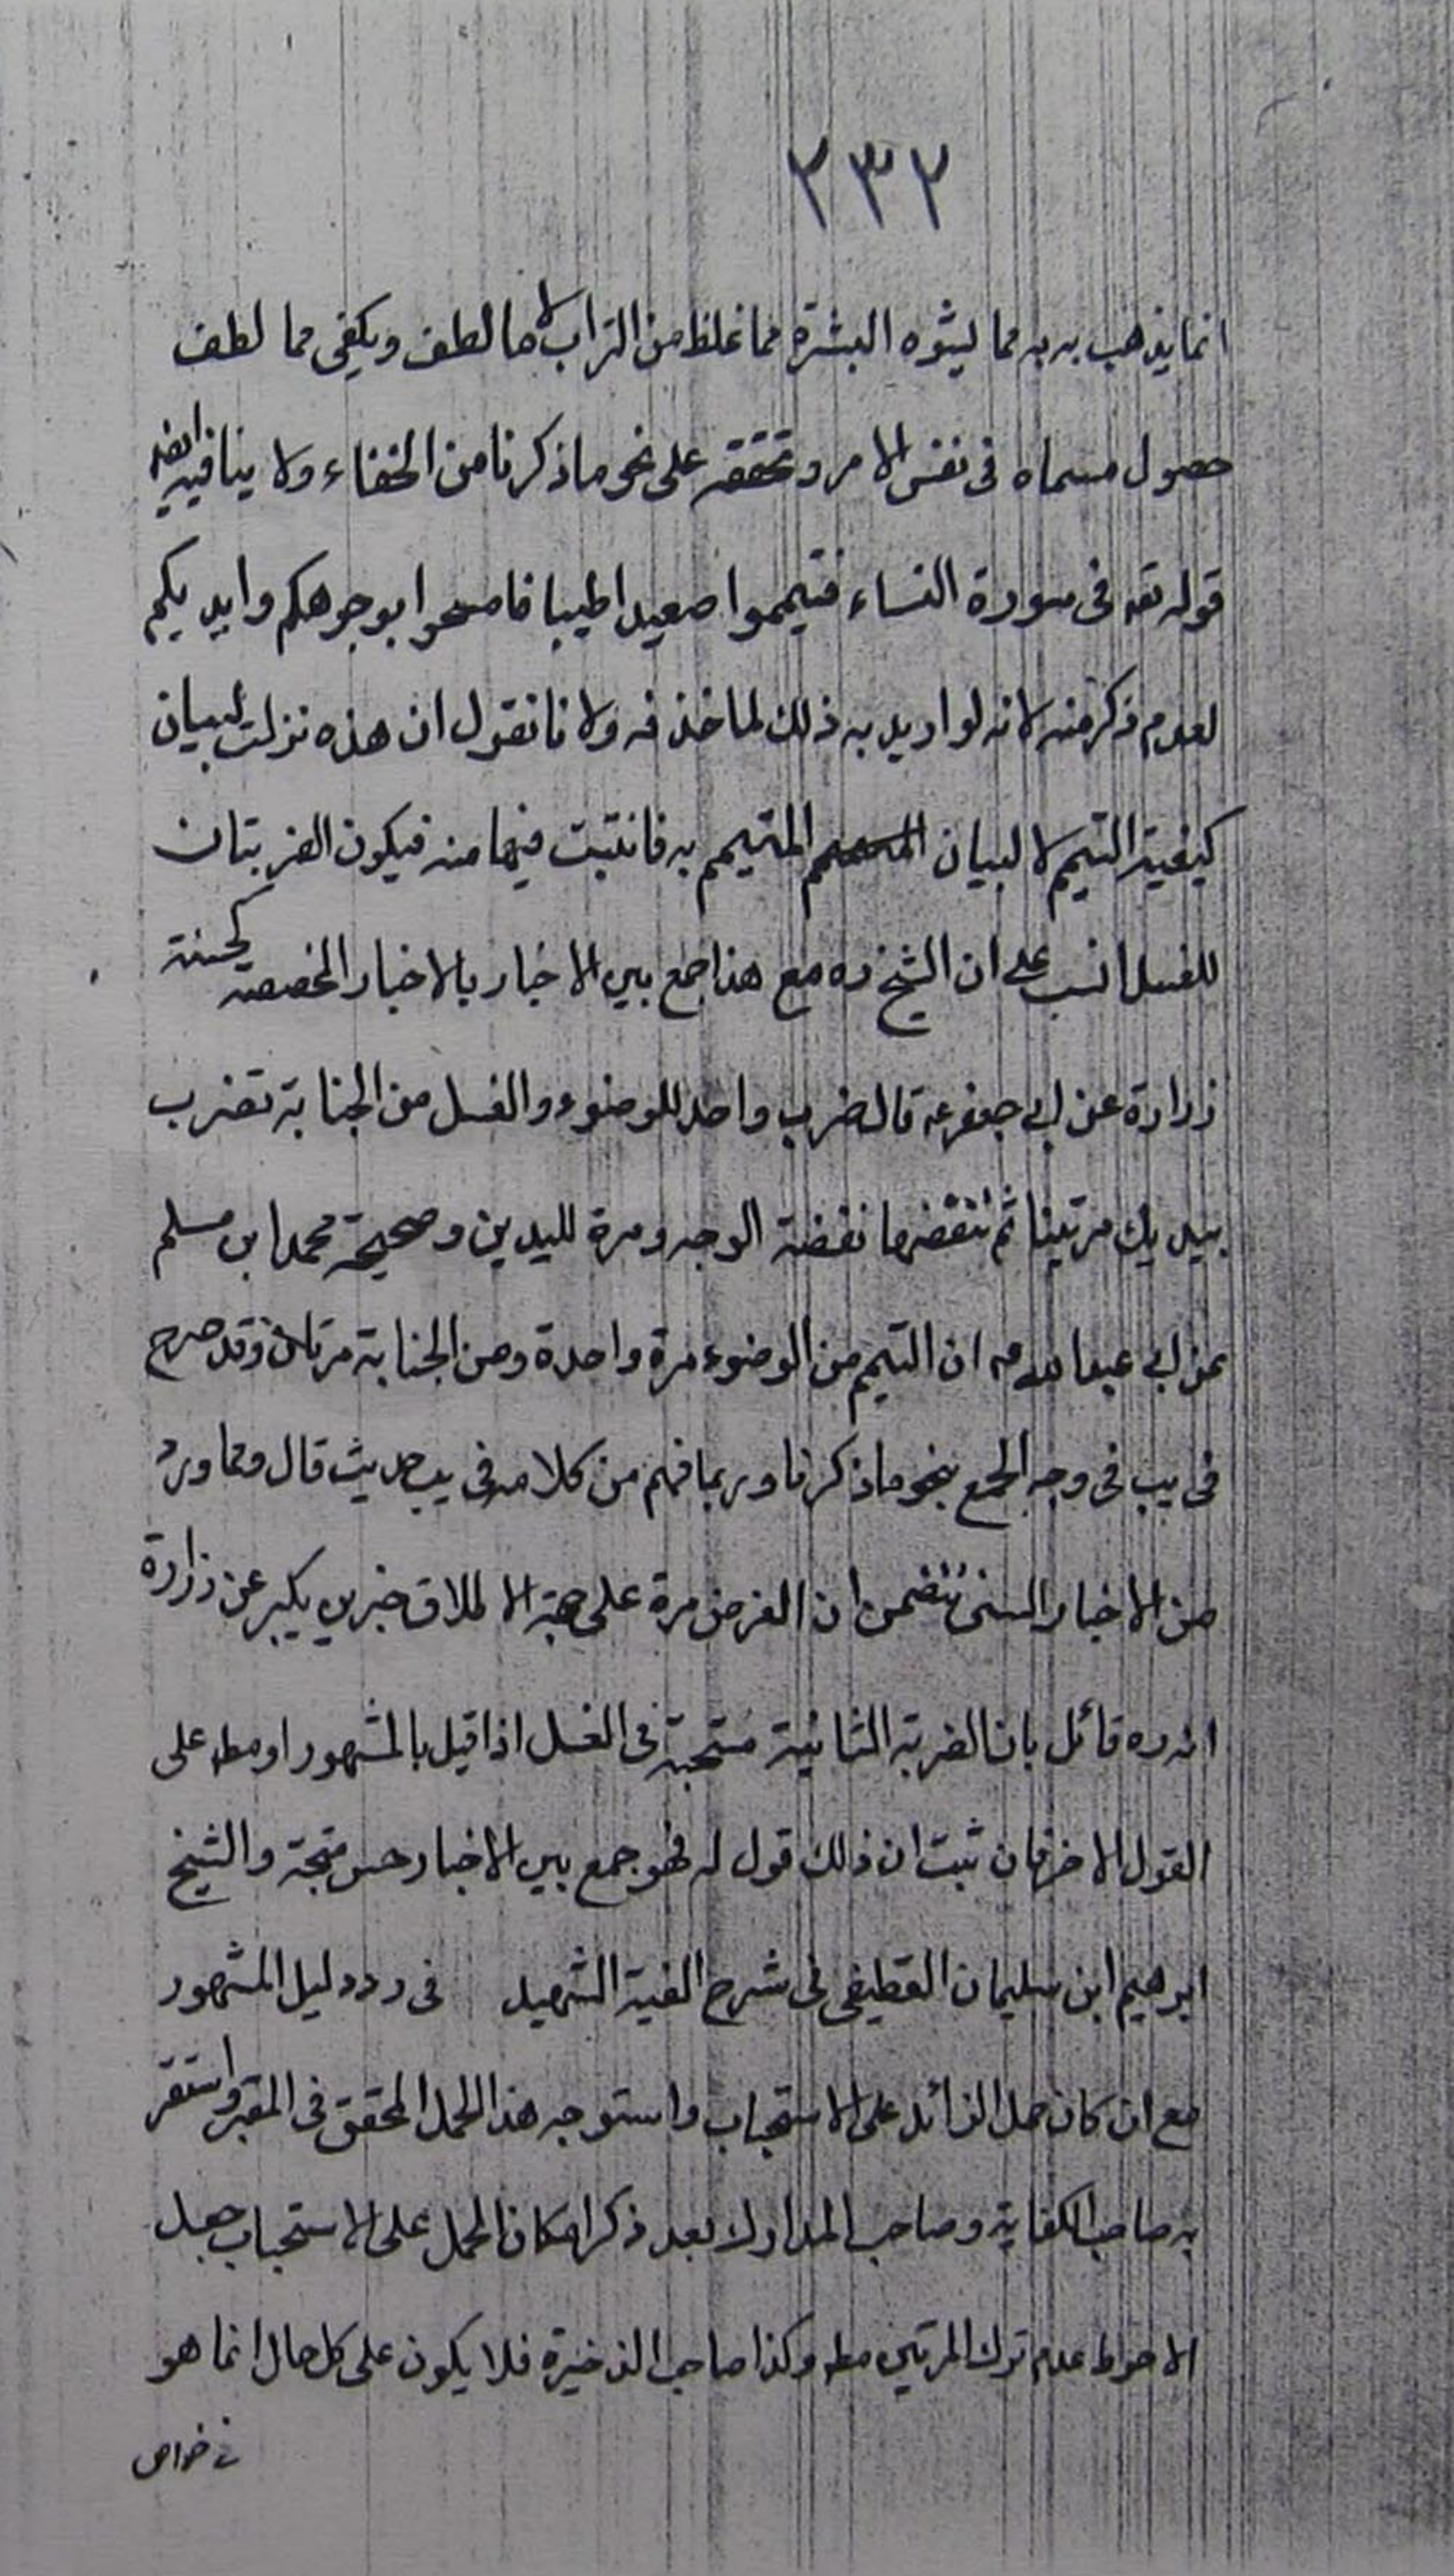 ٢٣٢
انما يذهب به به مما يشوه البشرة مما غلظ من التراب لا ما لطف ويكفى مما لطف
حصول مسماه فى نفس الامر وتحققه على نحو ما ذكرنا من الخفاء ولا ينافيه ايضا
قوله تعه فى سورة النساء فتيمموا صعيدا طيبا فامسحوا بوجوهكم وايديكم
لعدم ذكر منه لانه لو اريد به ذلك لما حذفه ولانا نقول ان هذه نزلت لبيان
كيفية التيمم لا لبيان المتيمم به فانتبت فيها منه فيكون الضربتان
للغسل انسب على ان الشيخ ره مع هذا جمع بين الاخبار بالاخبار المخصصه كحسنة
زرارة عن ابى جعفر عه قال ضرب واحد للوضوء والغسل من الجنابة تضرب
بيديك مرتين ثم تنفضهما نفضة الوجه ومرة لليدين وصحيحة محمد ابن مسلم
عن ابى عبدالله عه ان التيمم من الوضوء مرة واحدة ومن الجنابة مرتان وقد صرح
فى يب فى وجه الجمع بنحو ما ذكرنا وربما فهم من كلامه فى يب حديث قال ومما ورد
من الاخبار التى تتضمن ان الفرض مرة على جهة الاطلاق خبر بن بكير عن زرارة
انه ره قائل بان الضربة الثانية مستحبة فى الغسل اذا قيل بالمشهور او مطه على
القول الاخر فان ثبت ان ذلك قول له فهو جمع بين الاخبار حسن متجه والشيخ
ابرهيم ابن سليمان القطيفى فى شرح الفية الشهيد فى رد دليل المشهور
مع ان كان حمل الزائد على الاستحباب واستوجه هذا الحمل المحقق فى المعتبر واستقر
به صاحب الكفاية وصاحب المدارك بعد ذكر امكان الحمل على الاستحباب جعل
الاحوط عدم ترك المرتين مطه وكذا صاحب الذخيرة فلا يكون على كل حال انما هو